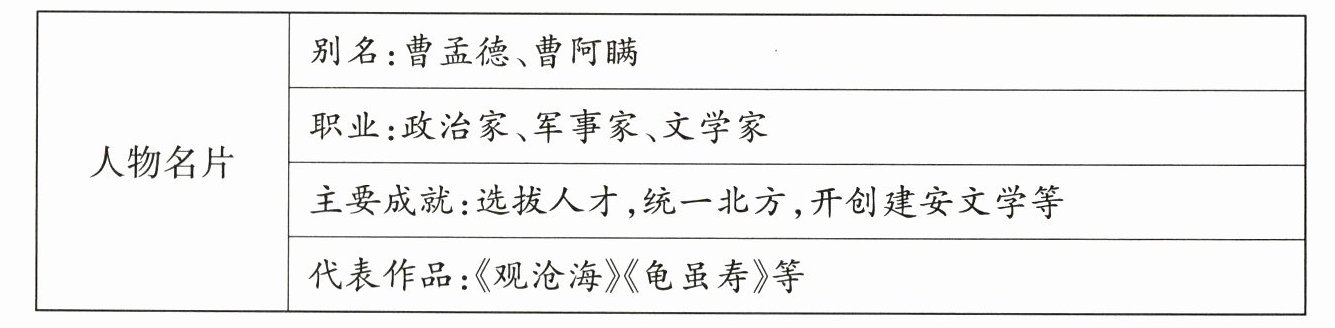 别名:曹孟德、曹阿瞒
职业:政治家、军事家、文学家
人物名片
主要成就:选拔人才,统一北方,开创建安文学等
代表作品:《观沧海》《龟虽寿》等